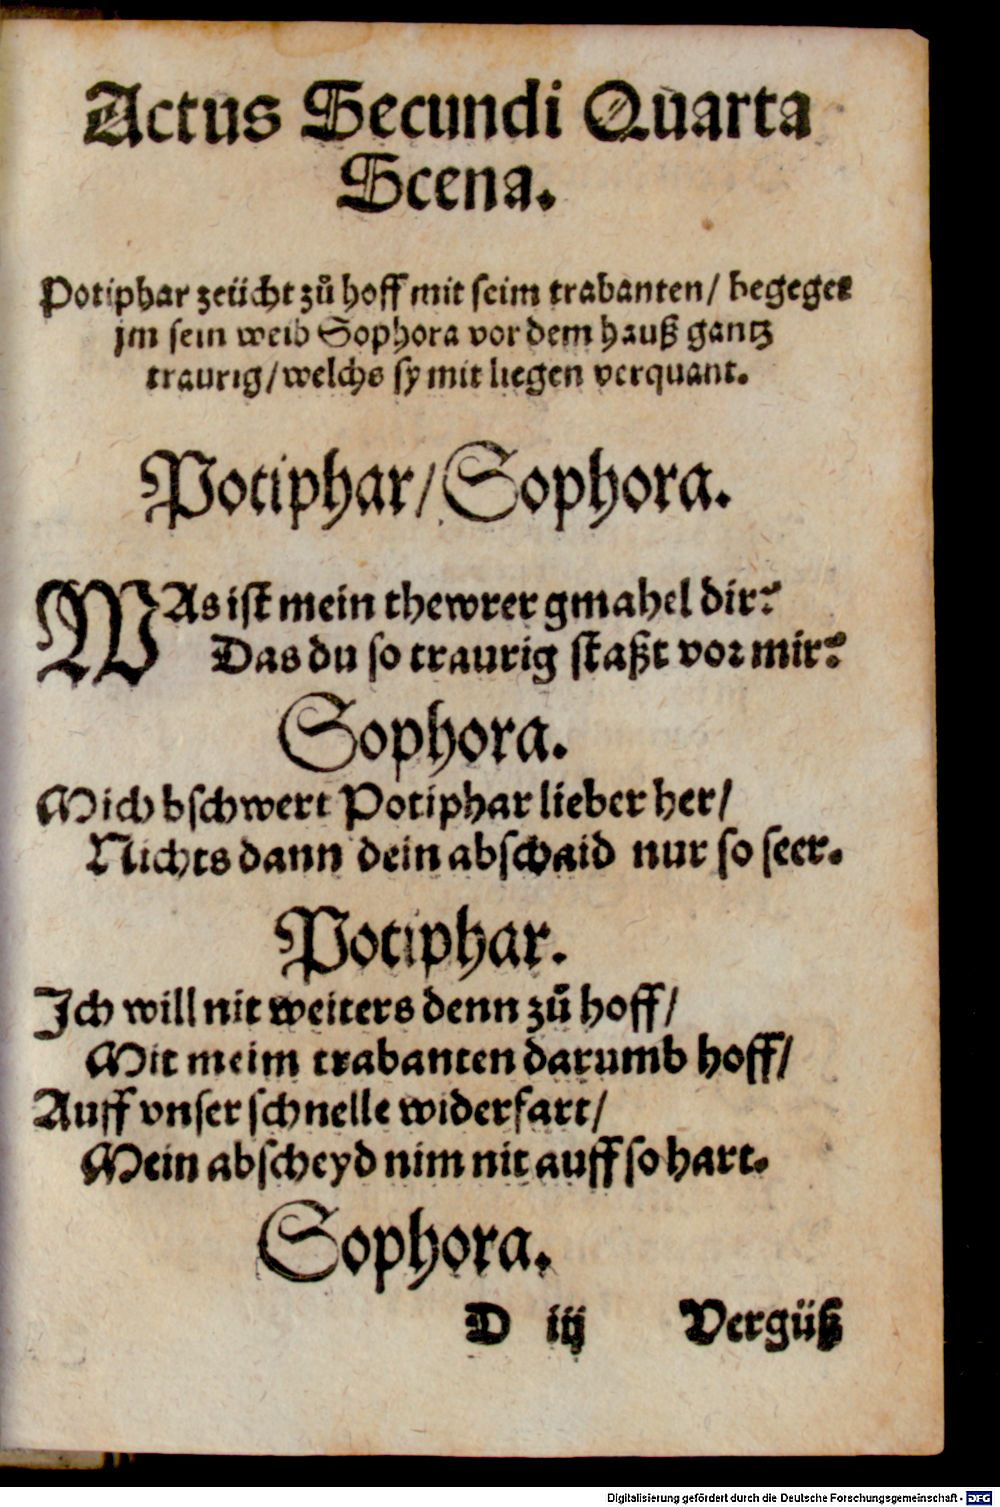 Actus Secundi Quarta
Scena.
Potiphar zeücht zů hoff mit seim trabanten / begeget
jm sein weib Sophora vor dem hauß gantz
traurig / welchs sy mit liegen verquant.
Potiphar / Sophora.
WAs ist mein thewrer gmahel dir?
Das du so traurig staßt vor mir?
Sophora.
Mich bschwert Potiphar lieber her /
Nichts dann dein abschaid nur so seer.
Potiphar.
Ich will nit weiters denn zů hoff /
Mit meim trabanten darumb hoff /
Auff vnser schnelle widerfart /
Mein abscheyd nim nit auff so hart.
Sophora.
D iij Vergüß
Digitalisierung gefördert durch die Deutsche Forschungsgemeinschaft - DFG